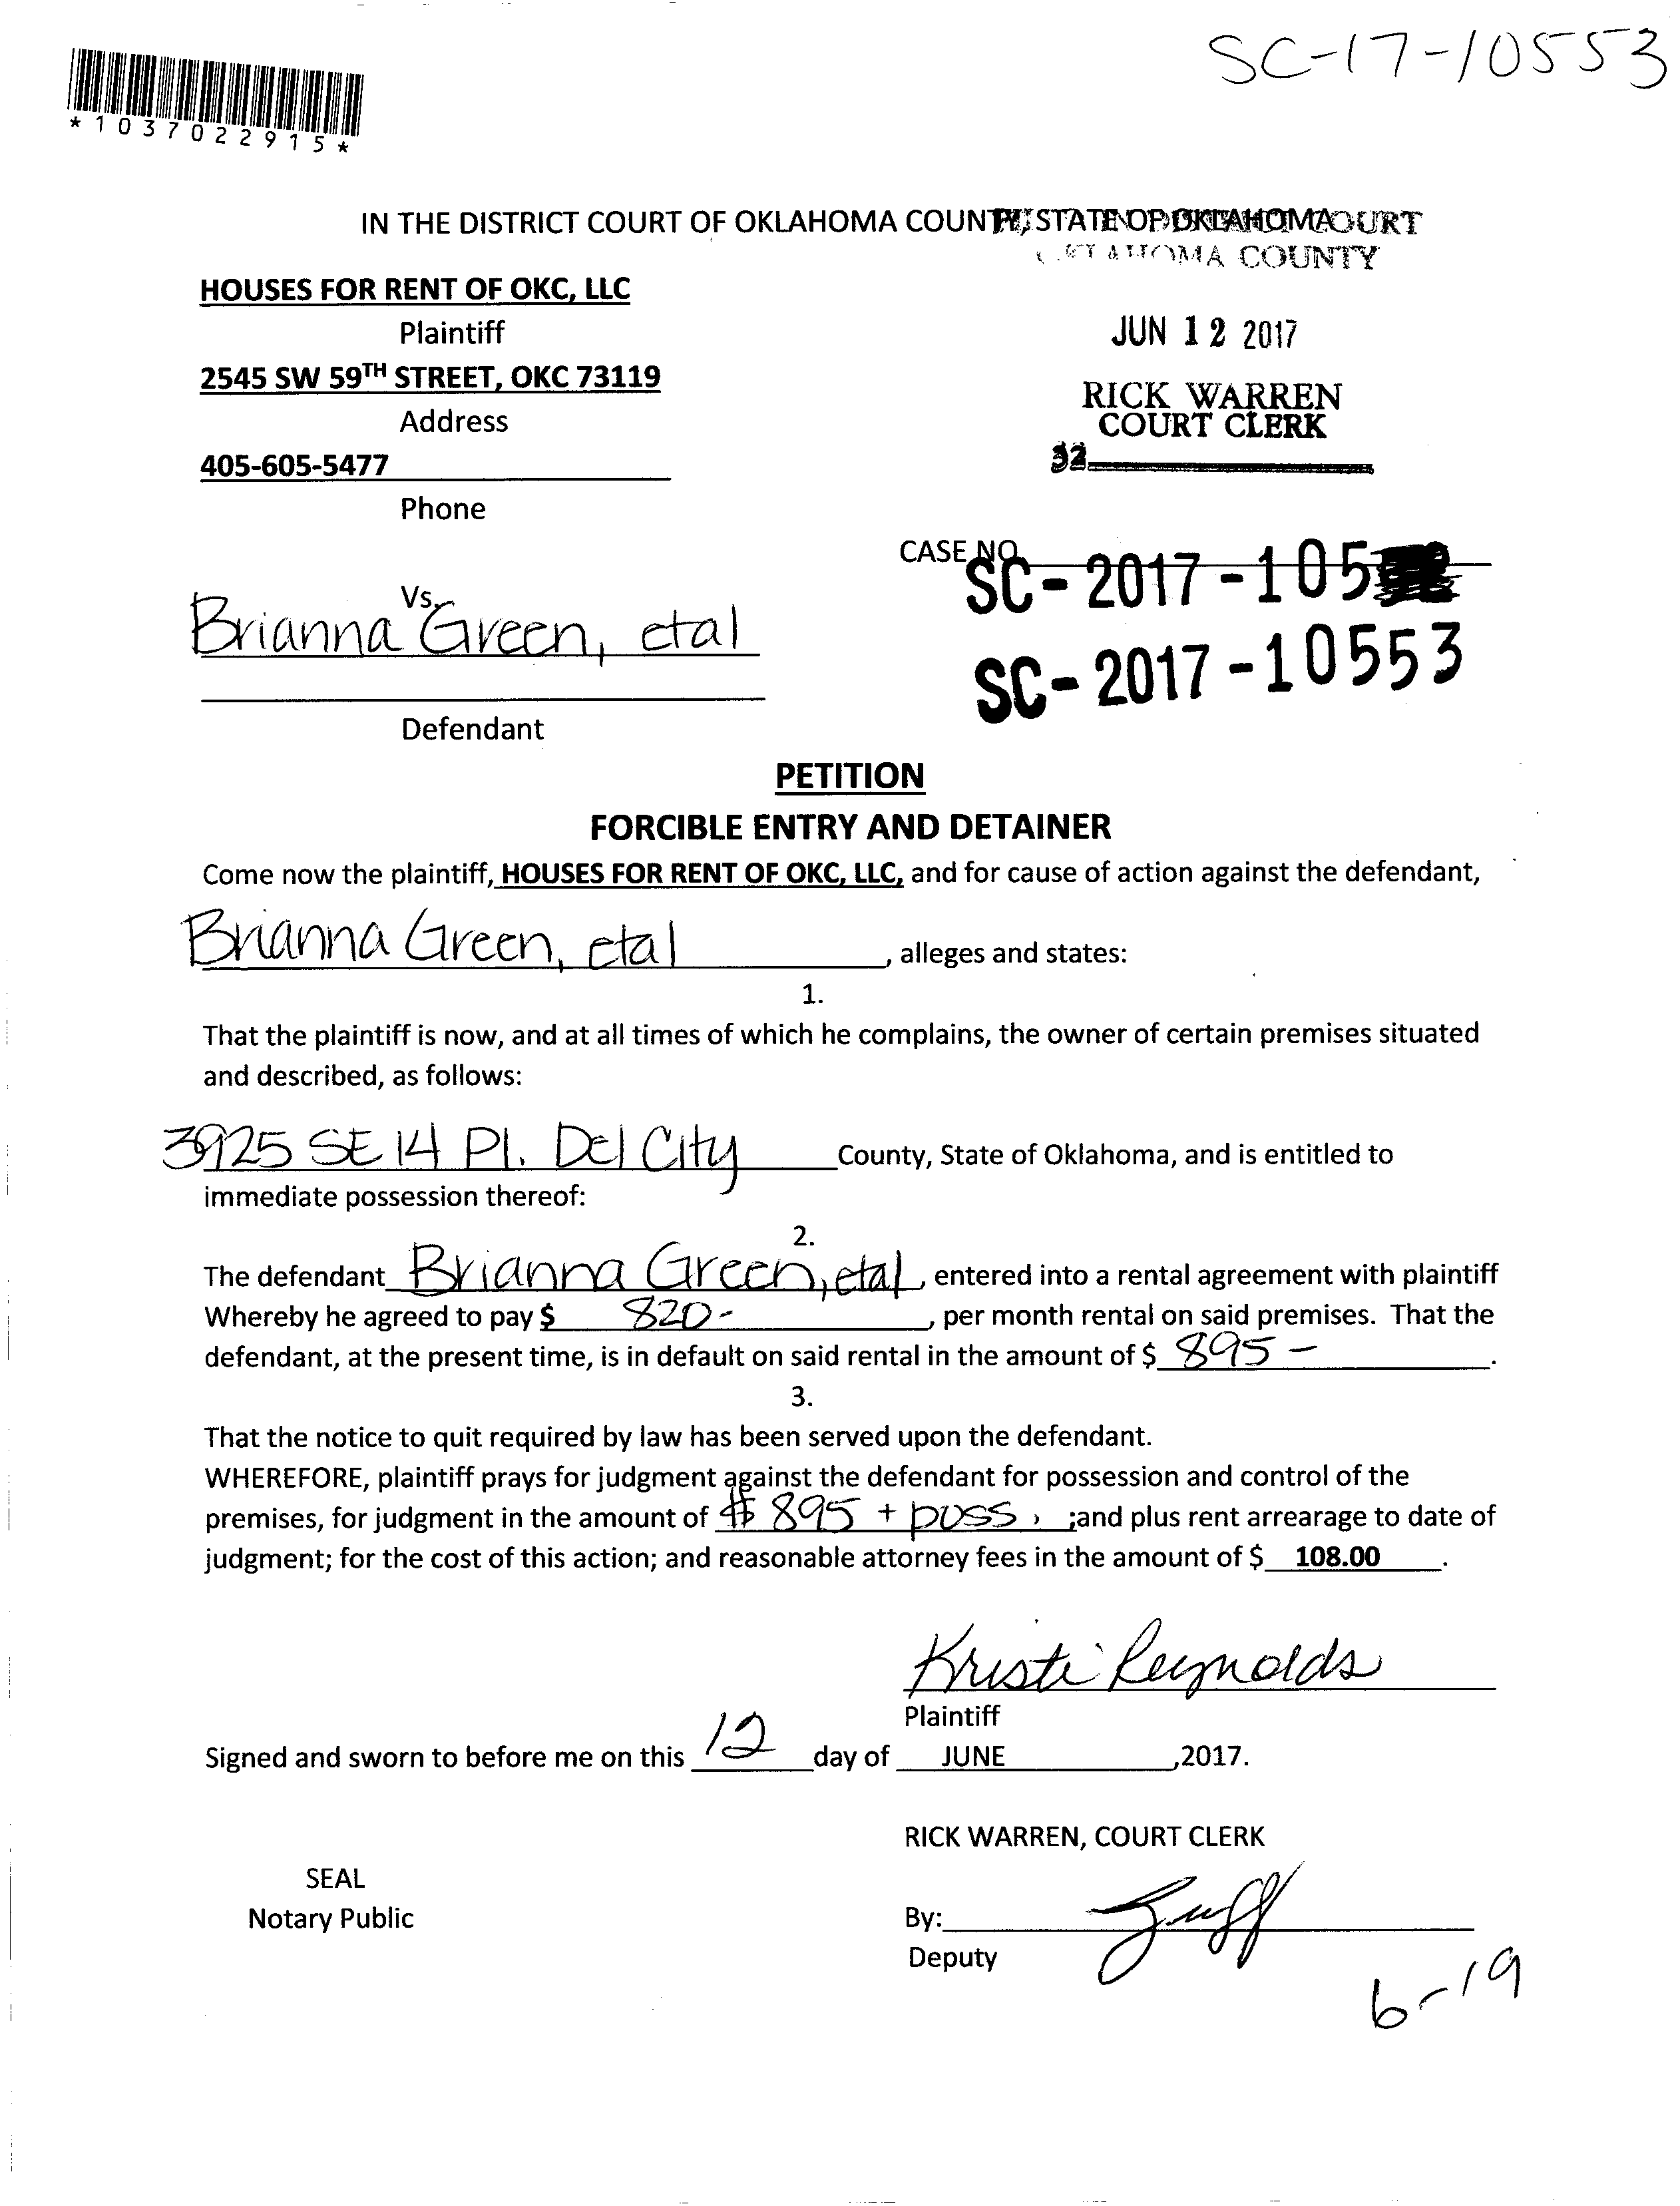 SC-17-10553
*1037022915*
IN THE DISTRICT COURT OF OKLAHOMA COUNTY, STATE OF OKLAHOMA COURT
OKLAHOMA COUNTY
HOUSES FOR RENT OF OKC, LLC
Plaintiff
JUN 12 2017
2545 SW 59TH STREET, OKC 73119
Address
RICK WARREN
COURT CLERK
405-605-5477
32
Phone
CASE NO.
SC-2017-105
Vs.
Brianna Green, etal
SC-2017-10553
Defendant
PETITION
FORCIBLE ENTRY AND DETAINER
Come now the plaintiff, HOUSES FOR RENT OF OKC, LLC, and for cause of action against the defendant,
Brianna Green, etal, alleges and states:
1.
That the plaintiff is now, and at all times of which he complains, the owner of certain premises situated
and described, as follows:
3925 SE 14 Pl. Del City County, State of Oklahoma, and is entitled to
immediate possession thereof:
2.
The defendant Brianna Green, etal, entered into a rental agreement with plaintiff
Whereby he agreed to pay $ 820-, per month rental on said premises. That the
defendant, at the present time, is in default on said rental in the amount of $ 895-.
3.
That the notice to quit required by law has been served upon the defendant.
WHEREFORE, plaintiff prays for judgment against the defendant for possession and control of the
premises, for judgment in the amount of $ 895 + poss, ;and plus rent arrearage to date of
judgment; for the cost of this action; and reasonable attorney fees in the amount of $ 108.00.
Kristi Reynolds
Plaintiff
Signed and sworn to before me on this 12 day of JUNE ,2017.
RICK WARREN, COURT CLERK
SEAL
Notary Public
By:
Deputy
6-19